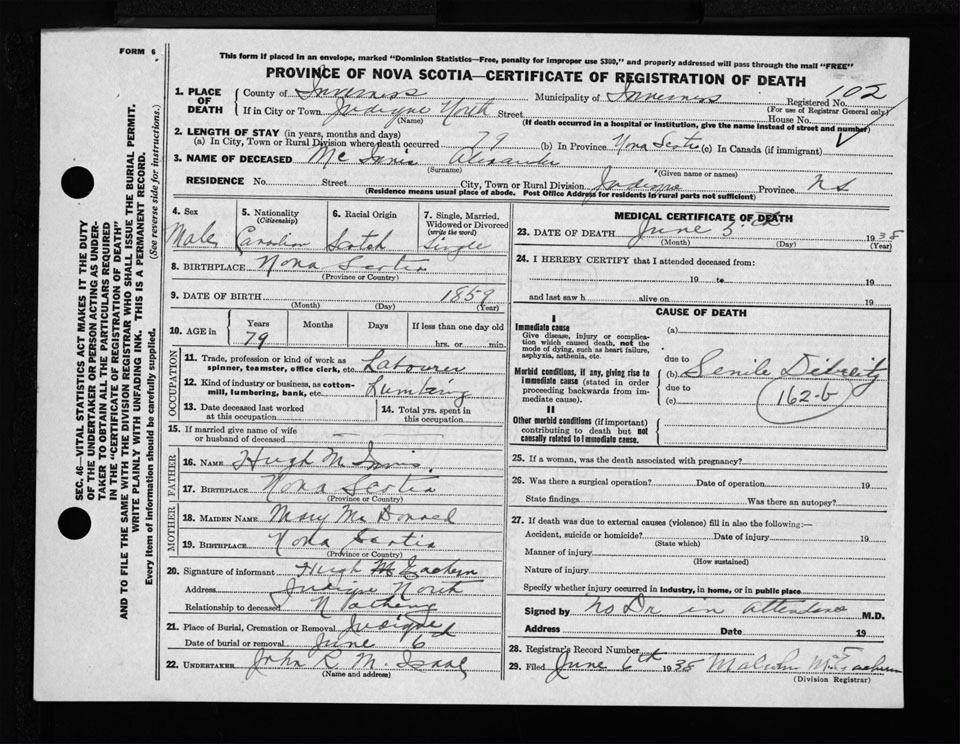 FORM 6
This form if placed in an envelope, marked "Dominion Statistics—Free, penalty for improper use $300," and properly addressed will pass through the mail "FREE"
PROVINCE OF NOVA SCOTIA—CERTIFICATE OF REGISTRATION OF DEATH
SEC. 46—VITAL STATISTICS ACT MAKES IT THE DUTY
OF THE UNDERTAKER OR PERSON ACTING AS UNDER-
TAKER TO OBTAIN ALL THE PARTICULARS REQUIRED
IN THE "CERTIFICATE OF REGISTRATION OF DEATH"
AND TO FILE THE SAME WITH THE DIVISION REGISTRAR WHO SHALL ISSUE THE BURIAL PERMIT.
WRITE PLAINLY WITH UNFADING INK. THIS IS A PERMANENT RECORD.
Every item of information should be carefully supplied. (See reverse side for instructions.)
1. PLACE OF DEATH County of Inverness Municipality of Inverness Registered No. 102
(For use of Registrar General only)
If in City or Town Judique North Street House No.
(Name) (If death occurred in a hospital or institution, give the name instead of street and number)
2. LENGTH OF STAY (in years, months and days)
(a) In City, Town or Rural Division where death occurred 79 (b) In Province Nova Scotia (c) In Canada (if immigrant)
3. NAME OF DECEASED Mc Innis Alexander
(Surname) (Given name or names)
RESIDENCE No. Street City, Town or Rural Division Judique Province NS
(Residence means usual place of abode. Post Office Address for residents in rural parts not sufficient)
4. Sex 5. Nationality 6. Racial Origin 7. Single, Married,
(Citizenship) Widowed or Divorced
(write the word)
Male Canadian Scotch Single
8. BIRTHPLACE Nova Scotia
(Province or Country)
9. DATE OF BIRTH 1859
(Month) (Day) (Year)
10. AGE in Years Months Days If less than one day old
79 hrs. or min.
OCCUPATION
11. Trade, profession or kind of work as
spinner, teamster, office clerk, etc. Labourer
12. Kind of industry or business, as cotton-
mill, lumbering, bank, etc. Lumbring
13. Date deceased last worked
at this occupation
14. Total yrs. spent in
this occupation
15. If married give name of wife
or husband of deceased
FATHER
16. NAME Hugh Mc Innis
17. BIRTHPLACE Nova Scotia
(Province or Country)
MOTHER
18. MAIDEN NAME Mary Mc Donnel
19. BIRTHPLACE Nova Scotia
(Province or Country)
20. Signature of informant Hugh Mc Eachern
Address Judique North
Relationship to deceased
21. Place of Burial, Cremation or Removal Judique
Date of burial or removal June 6
22. UNDERTAKER John R. Mc Isaac
(Name and address)
MEDICAL CERTIFICATE OF DEATH
23. DATE OF DEATH June 5th 1938
(Month) (Day) (Year)
24. I HEREBY CERTIFY that I attended deceased from:
19 to 19
and last saw h alive on 19
CAUSE OF DEATH
I
Immediate cause
Give disease, injury or complica-
tion which caused death, not the
mode of dying, such as heart failure,
asphyxia, asthenia, etc.
(a)
due to
Morbid conditions, if any, giving rise to
immediate cause (stated in order
proceeding backwards from im-
mediate cause).
(b) Senile Debility
due to
(c)
162-b
II
Other morbid conditions (if important)
contributing to death but not
causally related to immediate cause.
25. If a woman, was the death associated with pregnancy?
26. Was there a surgical operation? Date of operation 19
State findings Was there an autopsy?
27. If death was due to external causes (violence) fill in also the following:—
Accident, suicide or homicide? Date of injury 19
(State which)
Manner of injury
(How sustained)
Nature of injury
Specify whether injury occurred in industry, in home, or in public place
Signed by No Dr in attendance M.D.
Address Date 19
28. Registrar's Record Number
29. Filed June 6th 1938 Malcolm McEachern
(Division Registrar)